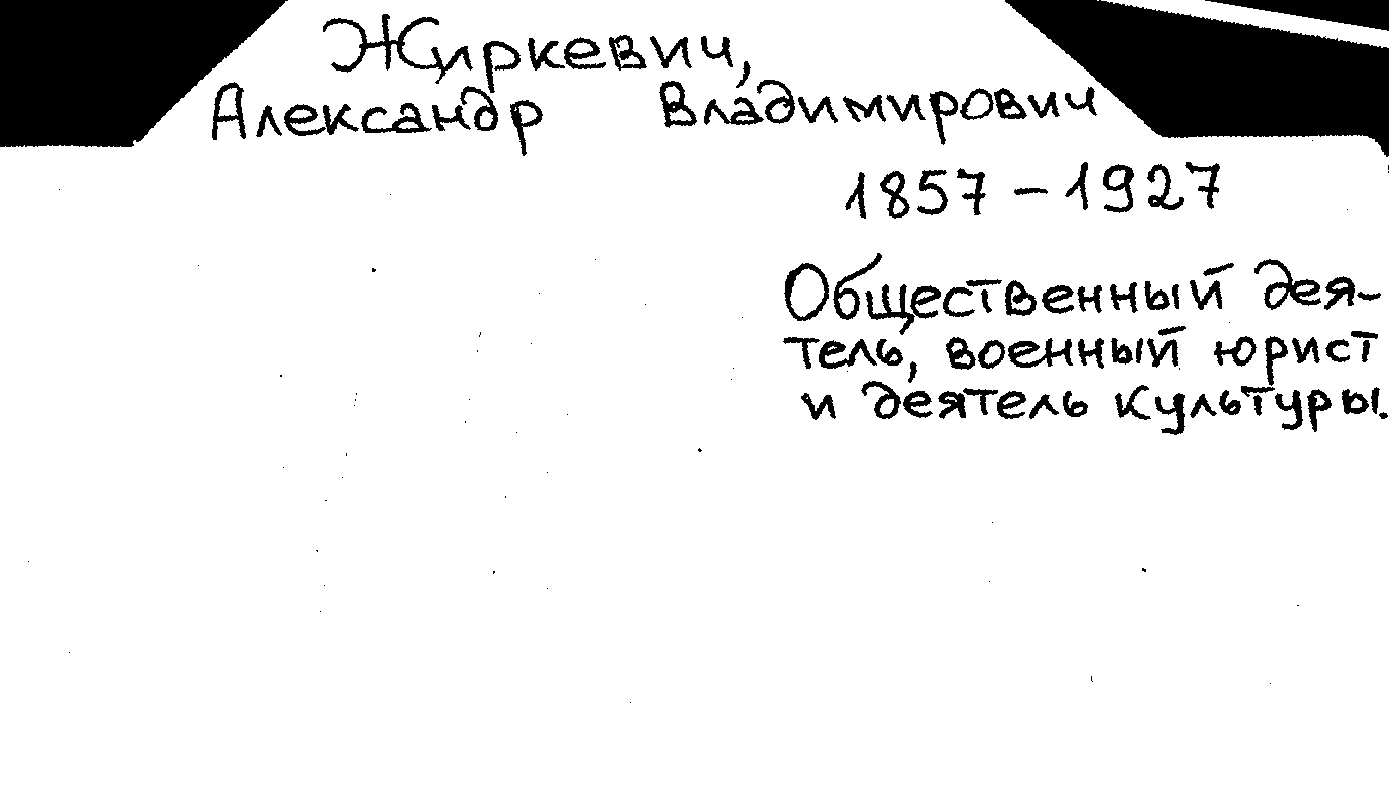 Жиркевич,
Александр Владимирович
1857 – 1927
Общественный дея-
тель, военный юрист
и деятель культуры.